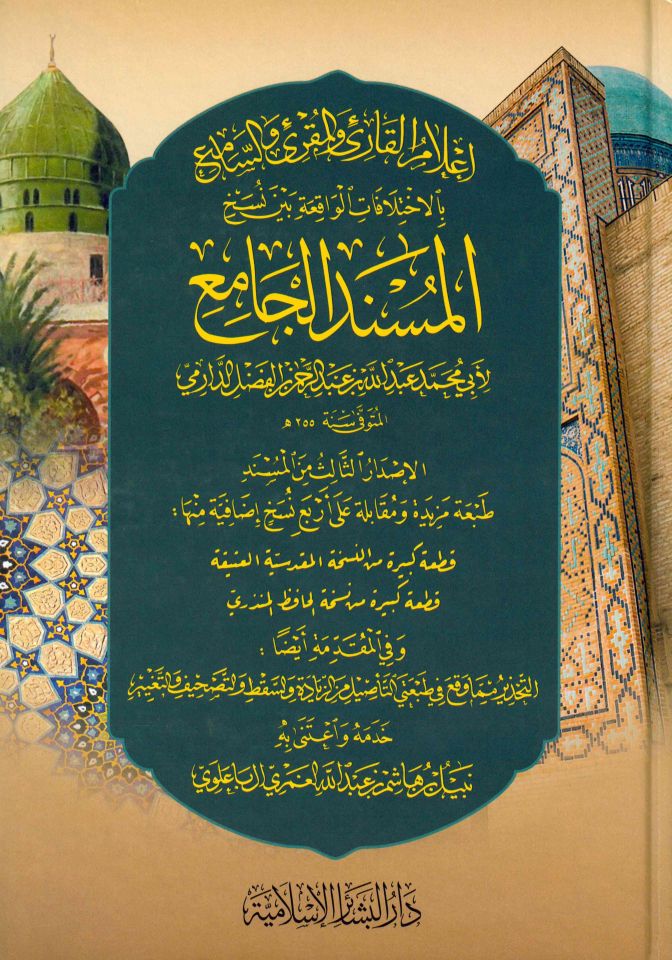 إعلام القارئ والمقرئ والسامع
بالاختلافات الواقعة بين نسخ
المسند الجامع
لأبي محمد عبد الله بن عبد الرحمن بن الفضل الدارمي
المتوفى سنة ٢٥٥ هـ
الإصدار الثالث من المسند
طبعة مزيدة ومقابلة على أربع نسخ إضافية منها:
قطعة كبيرة من النسخة المقدسية العتيقة
قطعة كبيرة من نسخة الحافظ المنذري
وفي المقدمة أيضًا:
التحذير مما وقع في طبعتي التأصيل من الزيادة والسقط والتصحيف والتغيير
خدمه واعتنى به
نبيل بن هاشم بن عبد الله الغمري آل باعلوي
دار البشائر الإسلامية